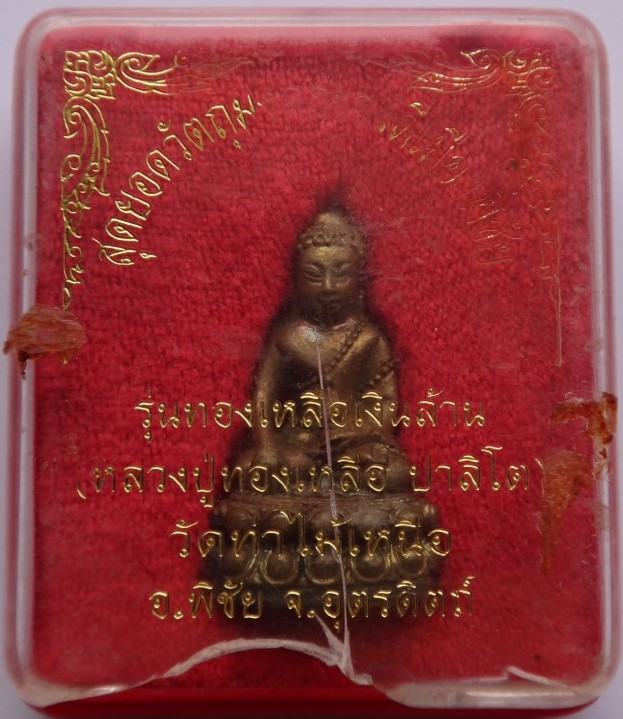 สุดยอดวัตถุม
รุ่นทองเหลือเงินล้าน
(หลวงปู่ทองเหลือ ปาลิโต)
วัดท่าไม้เหนือ
อ.พิชัย จ.อุตรดิตถ์